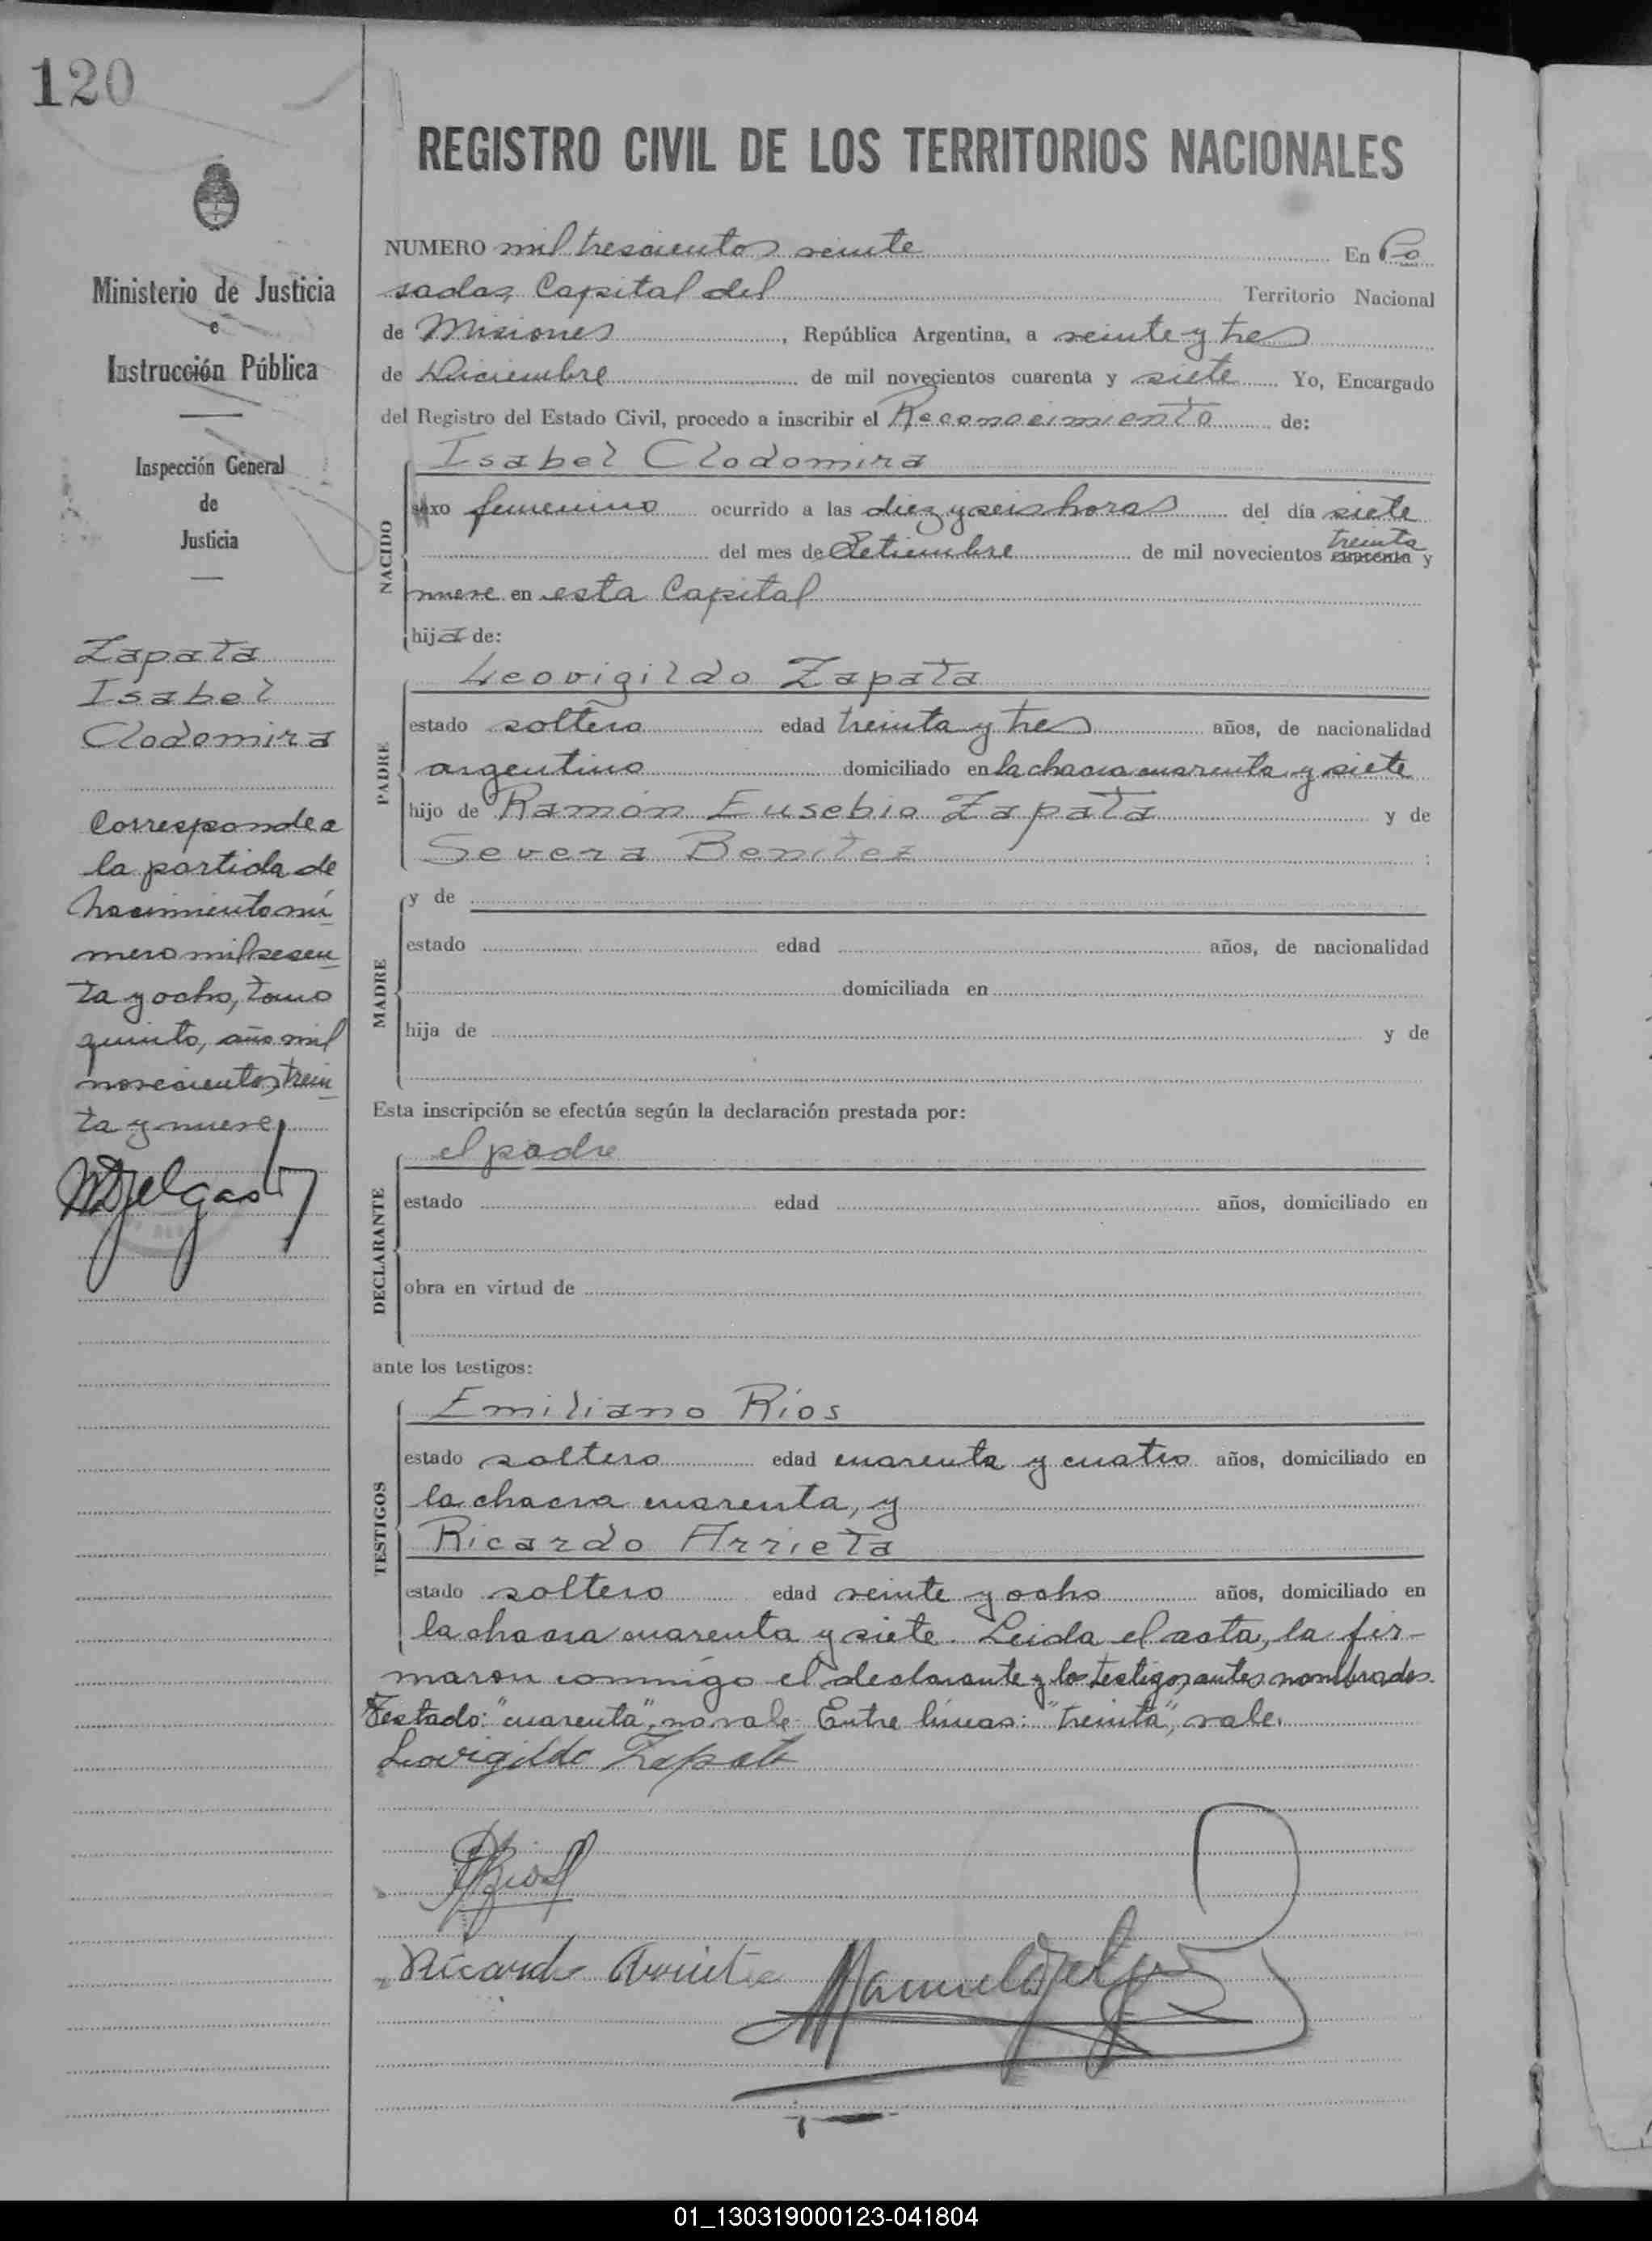 120
REGISTRO CIVIL DE LOS TERRITORIOS NACIONALES
Ministerio de Justicia
e
Instrucción Pública
Inspección General
de
Justicia
Zapata
Isabel
Clodomira
Corresponde a
la partida de
nacimiento nú
mero mil sesen
ta y ocho, tomo
quinto, año mil
novecientos trein
ta y nueve
MDelgado
NUMERO mil trescientos veinte En Po
sadas, Capital del Territorio Nacional
de Misiones, República Argentina, a veinte y tres
de Diciembre de mil novecientos cuarenta y siete Yo, Encargado
del Registro del Estado Civil, procedo a inscribir el Reconocimiento de:
NACIDO
Isabel Clodomira
sexo femenino ocurrido a las diez y seis horas del día siete
treinta
del mes de Setiembre de mil novecientos cuarenta y
nueve en esta Capital
hija de:
PADRE
Leovigildo Zapata
estado soltero edad treinta y tres años, de nacionalidad
argentino domiciliado en la chacra cuarenta y siete
hijo de Ramón Eusebio Zapata y de
Severa Benítez ;
MADRE
y de
estado edad años, de nacionalidad
domiciliada en
hija de y de
Esta inscripción se efectúa según la declaración prestada por:
DECLARANTE
el padre
estado edad años, domiciliado en
obra en virtud de
ante los testigos:
TESTIGOS
Emiliano Ríos
estado soltero edad cuarenta y cuatro años, domiciliado en
la chacra cuarenta, y
Ricardo Arrieta
estado soltero edad veinte y ocho años, domiciliado en
la chacra cuarenta y siete. Leida el acta, la fir-
maron conmigo el declarante y los testigos antes nombrados.
Testado: "cuarenta", no vale. Entre líneas: "treinta", vale.
Leovigildo Zapata
ERios
Ricardo Arrieta
Manuel Delgado
01_130319000123-041804